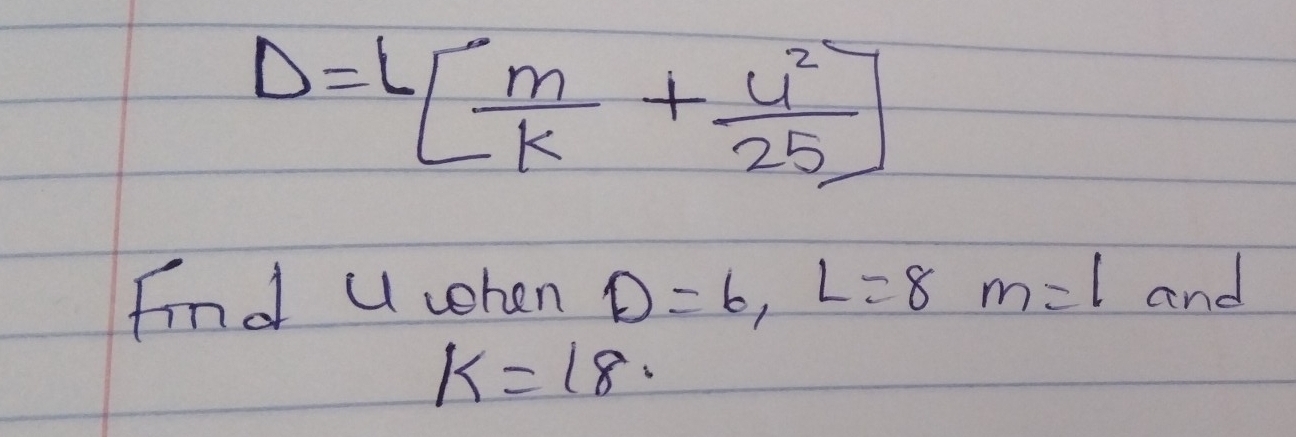 D=L[m/k + u²/25]
Find u when D=6, L=8 m=1 and
K=18.